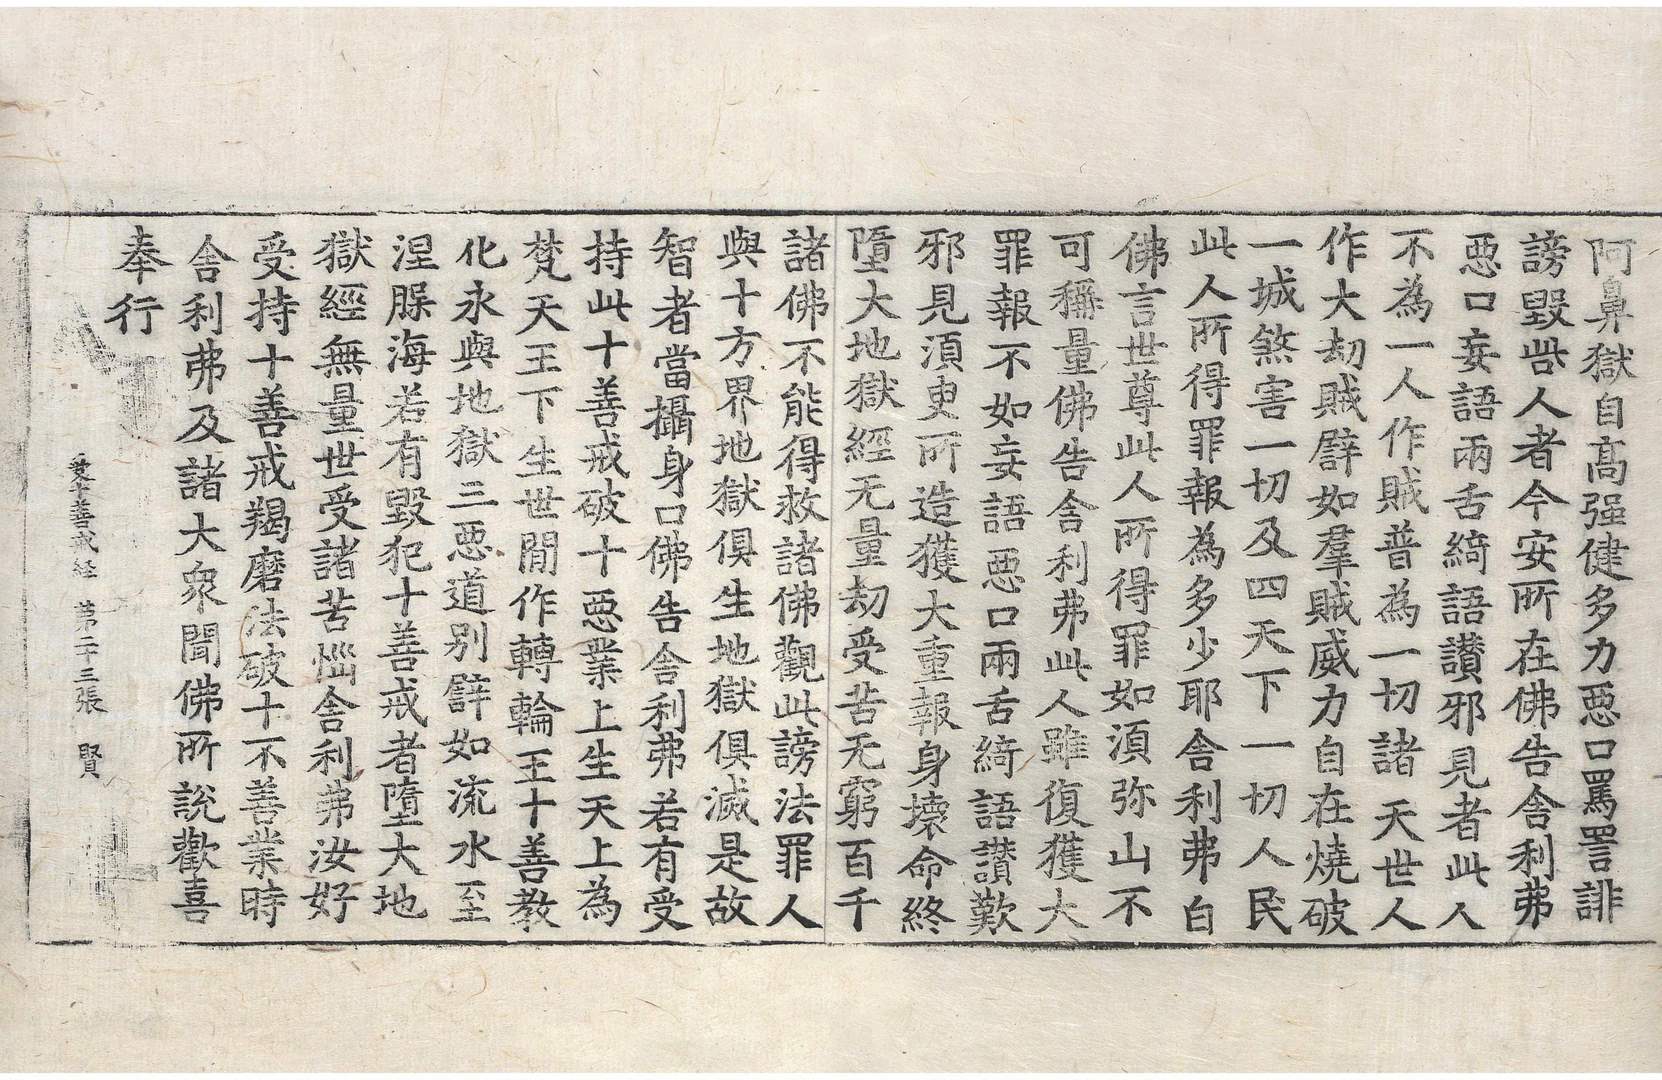 阿鼻獄自高强健多力惡口罵詈誹
謗毀呰人者今安所在佛告舍利弗
惡口妄語兩舌綺語讃邪見者此人
不為一人作賊普為一切諸天世人
作大劫賊譬如羣賊威力自在燒破
一城煞害一切及四天下一切人民
此人所得罪報為多少耶舍利弗白
佛言世尊此人所得罪如須弥山不
可稱量佛告舍利弗此人雖復獲大
罪報不如妄語惡口兩舌綺語讃歎
邪見須臾所造獲大重報身壞命終
墮大地獄經无量劫受苦无窮百千
諸佛不能得救諸佛觀此謗法罪人
與十方界地獄俱生地獄俱滅是故
智者當攝身口佛告舍利弗若有受
持此十善戒破十惡業上生天上為
梵天王下生世間作轉輪王十善教
化永與地獄三惡道別譬如流水至
涅㬼海若有毀犯十善戒者墮大地
獄經無量世受諸苦惱舍利弗汝好
受持十善戒羯磨法破十不善業時
舍利弗及諸大衆聞佛所說歡喜
奉行
受十善戒経 第二十三張 賢